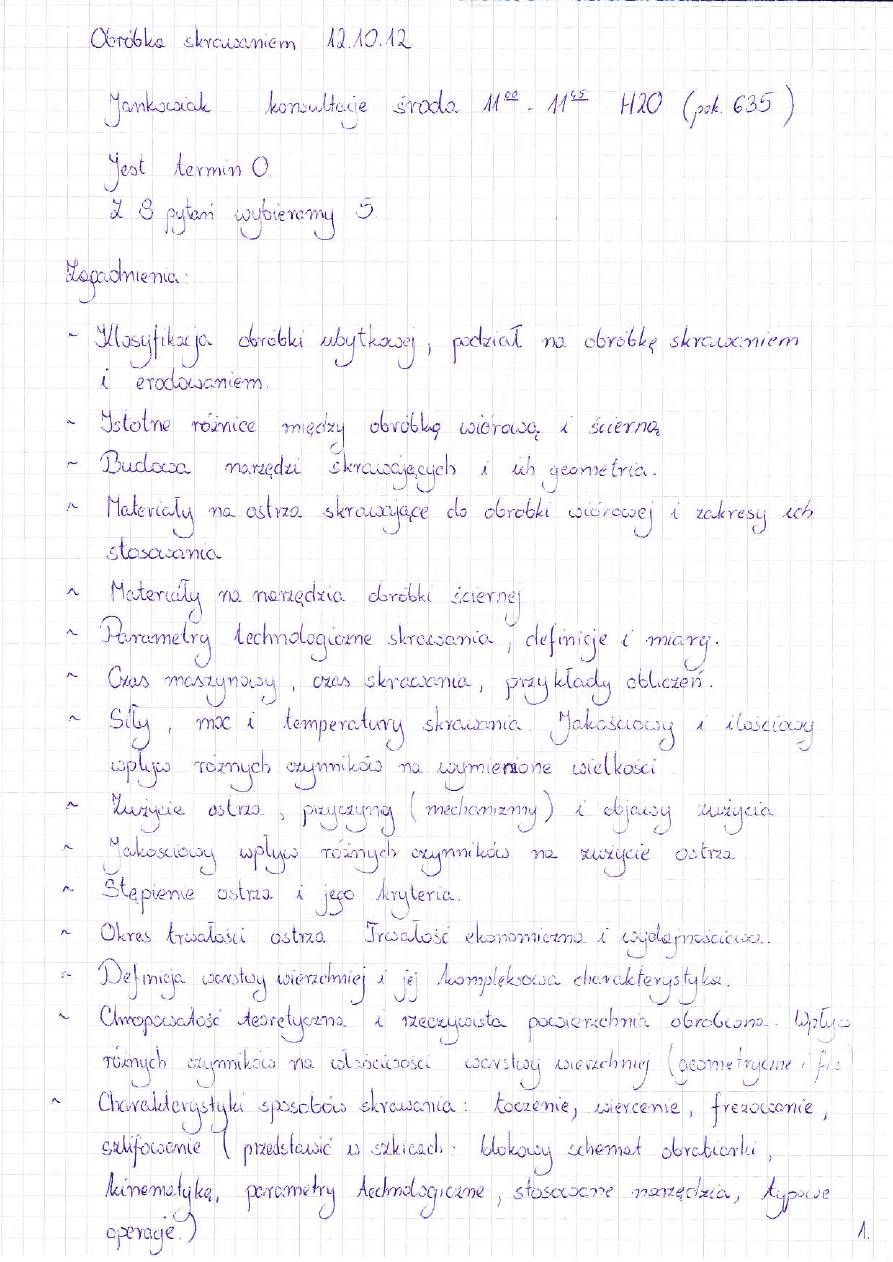 Obróbka skrawaniem 12.10.12
Jankowiak konsultacje środa 11⁰⁰ - 11⁴⁵ H20 (pok. 635)
Jest termin 0.
Z 8 pytań wybieramy 5.
Zagadnienia:
~ Klasyfikacja obróbki ubytkowej, podział na obróbkę skrawaniem
i erodowaniem.
~ Istotne różnice między obróbką wiórową i ścierną
~ Budowa narzędzi skrawających i ich geometria.
~ Materiały na ostrza skrawające do obróbki wiórowej i zakresy ich
stosowania
~ Materiały na narzędzia obróbki ściernej
~ Parametry technologiczne skrawania, definicje i miary.
~ Czas maszynowy, czas skrawania, przykłady obliczeń.
~ Siły, moc i temperatury skrawania. Jakościowy i ilościowy
wpływ różnych czynników na wymienione wielkości
~ Zużycie ostrza, przyczyny (mechanizmy) i objawy zużycia
~ Jakościowy wpływ różnych czynników na zużycie ostrza.
~ Stępienie ostrza i jego kryteria.
~ Okres trwałości ostrza Trwałość ekonomiczna i wydajnościowa..
~ Definicja warstwy wierzchniej i jej kompleksowa charakterystyka.
~ Chropowatość teoretyczna i rzeczywista powierzchnia obrobiona. Wpływ
różnych czynników na właściwości warstwy wierzchniej (geometryczne i fiz)
~ Charakterystyki sposobów skrawania: toczenie, wiercenie, frezowanie,
szlifowanie (przedstawić w szkicach: blokowy schemat obrabiarki,
kinematykę, parametry technologiczne, stosowane narzędzia, typowe
operacje.)
1.